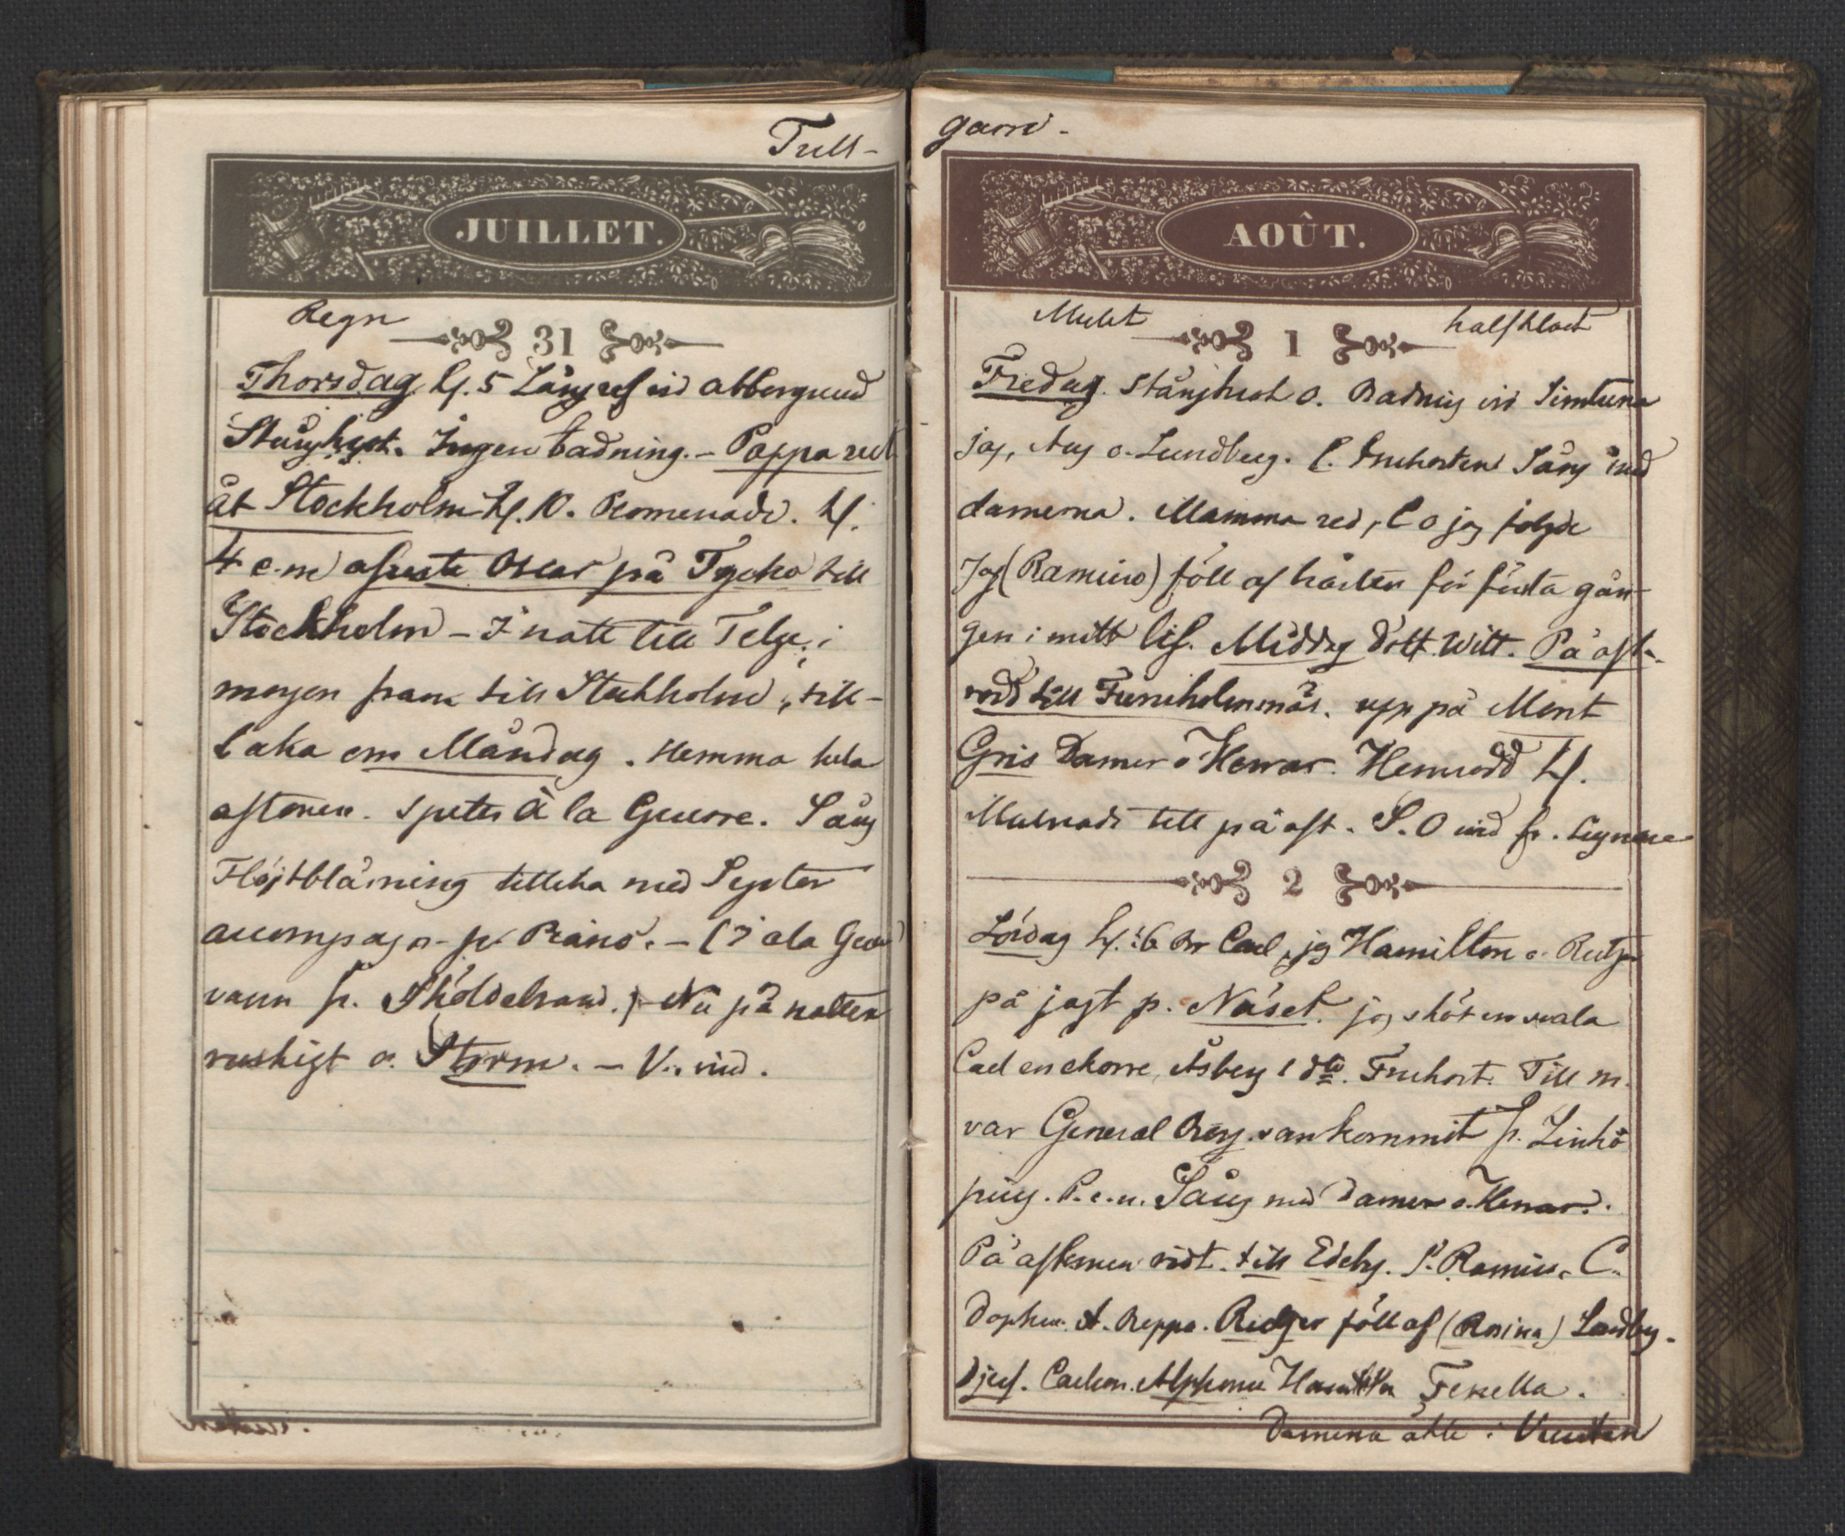 Tull-
JUILLET.
Regn
31
Thorsdag. kl. 5 Långref vid abborgrund
Stångkrok. Ingen badning. - Pappa rest
åt Stockholm kl. 10. Promenade. kl.
4 e.m afreste Oscar på Tycho till
Stockholm - I natt till Telge, i
morgon fram till Stockholm, till-
baka om Måndag. Hemma hela
aftonen. Spelte à la Guerre. Sång
Flöjtblåsning
accompagn. på Piano. - ( J ala Guer
vann fr. Sköldebrand.) - Nu på natten
ruskigt o. Storm. - V. vind.
garn -
AOÛT.
Mulet
1
halfklart
Fredag. o. Badning vid
jag, Aug o. Lundberg. f. frukosten Sång med
damerna. Mamma red, C o jag följde
Jag (Ramiro) föll af hästen för första gån-
gen i mitt lif. Middag Dokt. Witt. På aft.
rodd till upp på Mont
Gris Damer o Herrar. Hemrodd kl.
till på aft. S. O vind fr.
2
Lördag kl. 6 Carl, jag Hamilton o. Rutger
på jagt p. Näset. jag sköt en svala
Carl en ekorre, 1 dto. Frukost. Till m.
var General ankommit fr. Linkö
ping. P. e. m. Sång med Damer o. Herrar.
På aftonen ridt. till Edeby. J. Ramiro, C.
A. Beppo. Rutger föll af (Rosina) Lundberg -
Djef. Carlson. Alphonse Hamilton Fenella.
Damerna åkte i Vursten